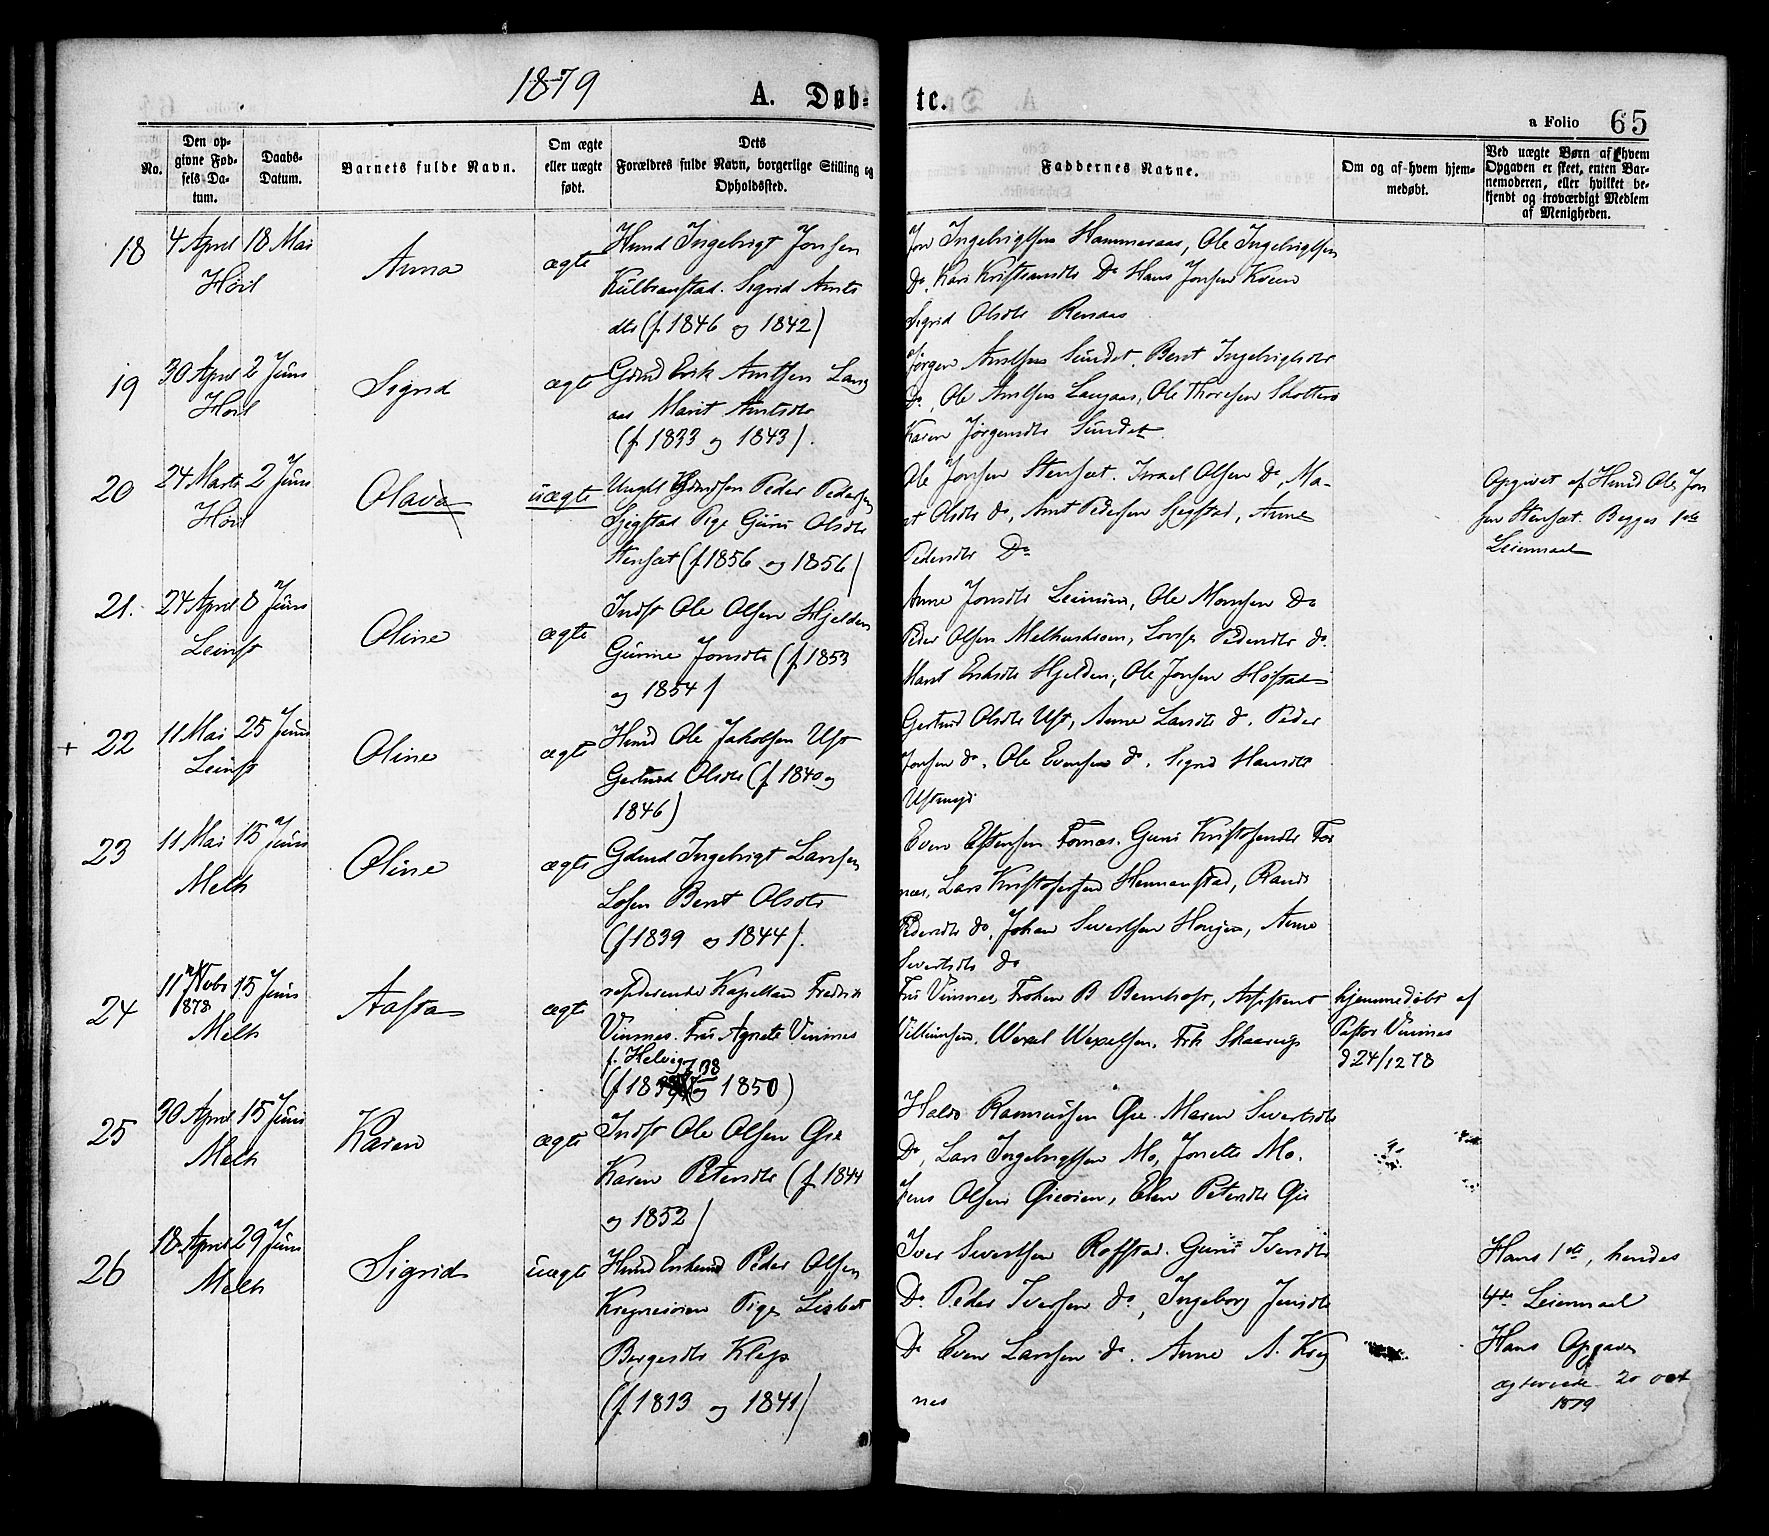 1879
A. Døb- te.
a Folio 65
No.
Den op-
givne Fød-
sels Da-
tum.
Daabs-
Datum.
Barnets fulde Navn.
Om ægte
eller uægte
født.
Dets
Forældres fulde Navn, borgerlige Stilling og
Opholdssted.
Faddernes Navne.
Om og af hvem hjem-
medøbt.
Ved uægte Børn af hvem
Opgaven er skeet, enten Bar-
nemoderen, eller hvilket be-
kjendt og troværdigt Medlem
af Menigheden.
18
4 April
Høil
18 Mai
Anna
ægte
Hmd Ingebrigt Jonsen
Kulbranstad. Sigrid Arnts
dtr (f. 1846 og 1842)
Jon Ingebrigtsen Hammeraas, Ole Ingebrigtsen
Do, Kari Kristiansdtr Do Hans Jonsen Kveen
Sigrid Olsdtr Renaas
19
30 April
Høil
2 Juni
Sigrid
ægte
Gdmd Erik Arntsen Lang
aas Marit Arntsdtr
(f. 1833 og 1843).
Jørgen Arntsen Sundet. Berit Ingebrigtsdtr
Do, Ole Arntsen Langaas, Ole Thoresen
Karen Jørgensdtr Sundet.
20
24 Marts
Høil
2 Juni
Olava
uægte
Ungkl Gdmdsøn Peder Pedersen
Sjegstad Pige Guru Olsdtr
Stensæt (f 1856 og 1856)
Ole Jonsen Stensæt. Israel Olsen Do, Ma-
rit Olsdtr do, Arnt Pedersen Sjegstad, Anne
Pedersdtr Do
Opgivet af Hmd Ole Jon
sen Stensæt. Begges 1ste
Leiermaal
21.
24 April
Leinst
8 Juni
Oline
ægte
Indst Ole Olsen Hjelden
Gurine Jonsdtr (f. 1853
og 1854)
Anne Jonsdtr, Ole Monsen Do
Peder Olsen Melhustrøen, Pedersdtr do.
Marit Eriksdtr Hjelden, Ole Jonsen Hofstad
+ 22
11 Mai
Leinst
25 Juni
Oline
ægte
Hmd Ole Jakobsen Ust
Gertrud Olsdtr (f. 1840 og
1846)
Gertrud Olsdtr Ust, Anne Larsdtr d. Peder
Jonsen do. Ole Evensen do. Sigrid Hansdtr
Ustmyr
23
11 Mai
Melh
15 Juni
Oline
ægte
Gdmd Ingebrigt Larsen
Losen Berit Olsdtr
(f 1839 og 1844).
Even Estensen Fornæs. Guru Kristofersdtr For
næs, Lars Kristofersen Hermanstad, Randi
Pedersdtr do, Johan Sivertsen Hougen, Anne
Sivertsdtr do
24
11 Novbr
1878
Melh
15 Juni
Aasta
ægte
residerende Kapellan Fredrik
Vinsnes. Fru Agnete Vinsnes
f. Helvig
(f 18 38 og 1850)
Fru Vinsnes, Frøken B Bernhoft, Assistent
Vilhumsen, Wexel Wexelsen. Frk Skaarup
hjemmedøbt af
Pastor Vinsnes
d. 24/12 78
25
30 April
Melh
15 Juni
Karen
ægte
Indst Ole Olsen Øie
Karen Petersdtr (f. 1844
og 1852)
Haldo Rasmussen Øie. Maren Sivertsdtr
Do, Lars Ingebrigtsen Mo, Jonette Mo.
Jens Olsen Øieøien, Elen Petersdtr Øie
26
18 April
Melh
29 Juni
Sigrid
uægte
Hmd Enkemd Peder Olsen
Kregnesøien Pige Lisbet
Børgesdtr Klep
(f. 1813 og 1841)
Iver Sivertsen Rofstad. Guru Iversdtr
Do. Peder Iversen do, Ingeborg Jensdtr
Do Even Larsen do. Anne A. Kreg
nes
Hans 1ste, hendes
4de Leiermaal
Hans Opgave
ægteviede 20 oct
1879